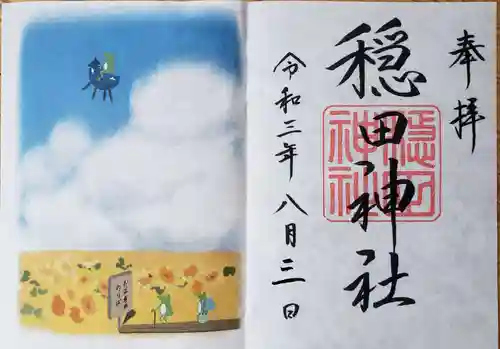 奉拝
穏田神社
穏田
神社
令和三年八月三日